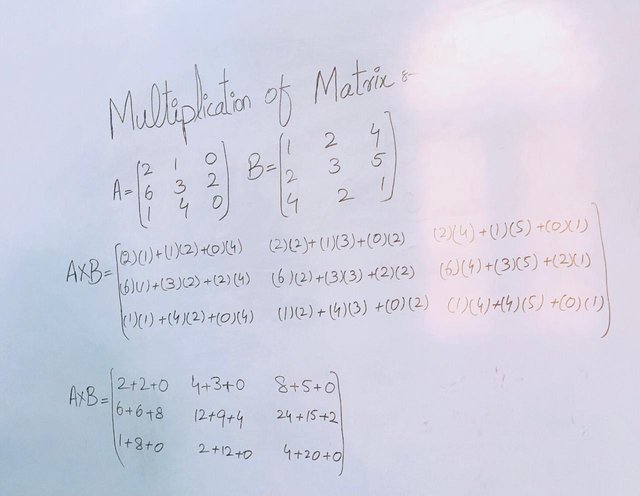 Multiplication of Matrix :-
A= [2 1 0
6 3 2
1 4 0]
B= [1 2 4
2 3 5
4 2 1]
A×B= [(2)(1)+(1)(2)+(0)(4) (2)(2)+(1)(3)+(0)(2) (2)(4)+(1)(5)+(0)(1)
(6)(1)+(3)(2)+(2)(4) (6)(2)+(3)(3)+(2)(2) (6)(4)+(3)(5)+(2)(1)
(1)(1)+(4)(2)+(0)(4) (1)(2)+(4)(3)+(0)(2) (1)(4)+(4)(5)+(0)(1)]
A×B= [2+2+0 4+3+0 8+5+0
6+6+8 12+9+4 24+15+2
1+8+0 2+12+0 4+20+0]